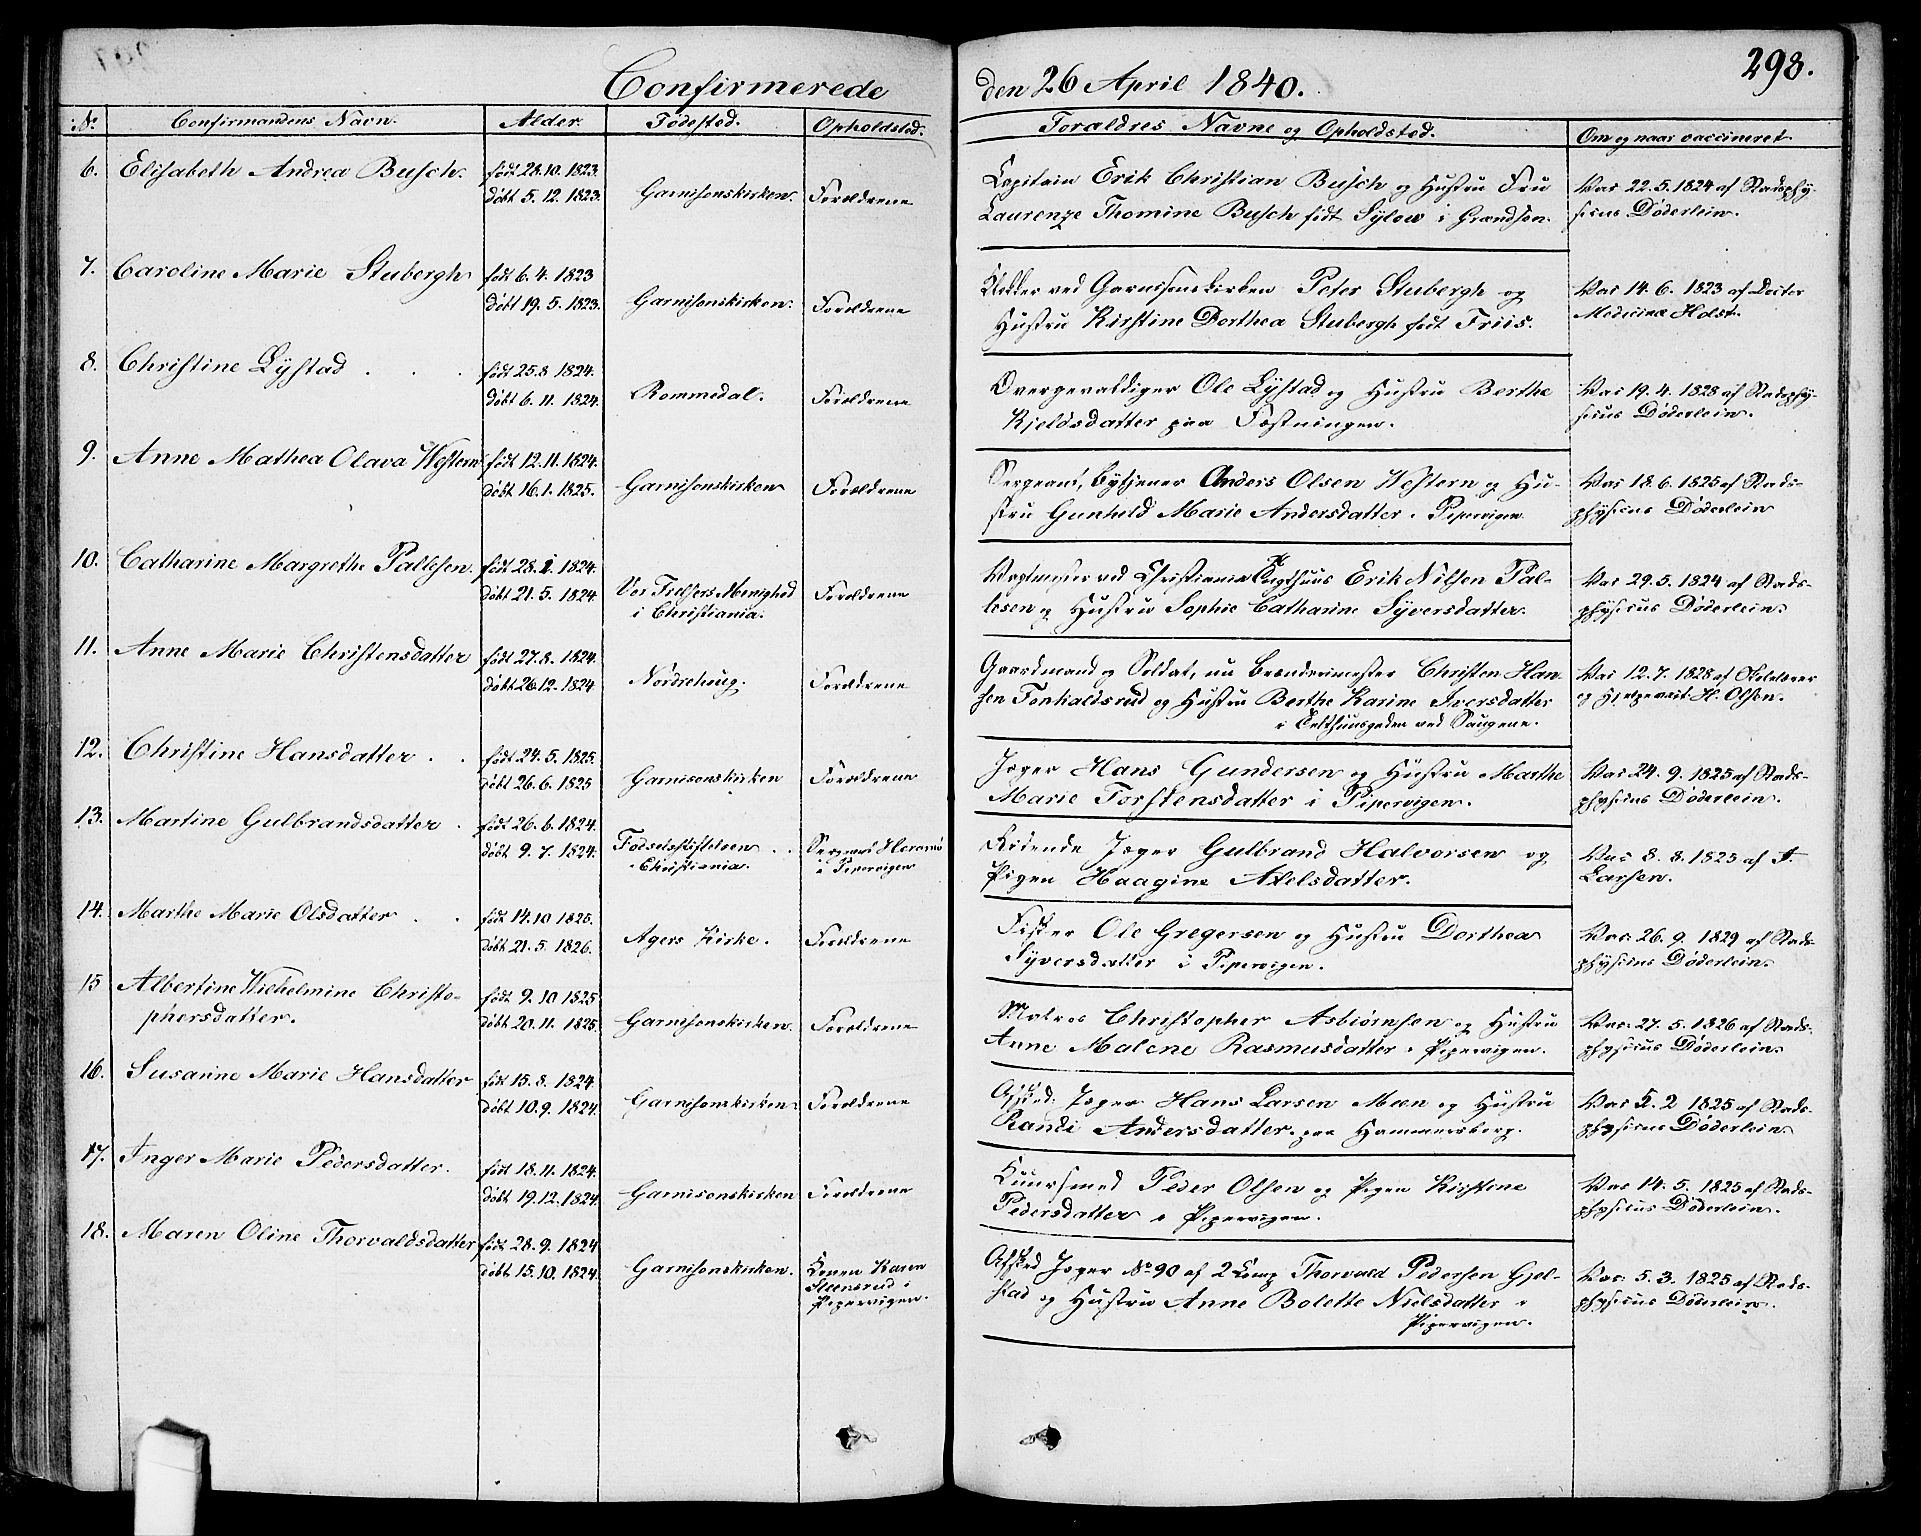 298.
Confirmerede den 26 April 1840.
No. Confirmandens Navn. Alder. Fødested. Opholdsted. Forældres Navne og Opholdsted. Om og naar vaccineret
6. Elisabeth Andrea Busch. født 28.10.1823. Capitain Erik Christian Busch og Hustru Fru Vac 22.5.1824 af Stadsphy-
døbt 5.12.1823. Garnisonskirken. Forældrene Laurenze Thomine Busch født Sylow i Grændsen. sicus Døderlein.
7. Caroline Marie Stubergh født 6.4.1823 Klokker ved Garnisonskirken Peter Stubergh og Vac 14.6.1823 af Doctor
døbt 19.5.1823. Garnisonskirken. Forældrene Hustru Kirstine Dorthea Stubergh født Friis. Medicinæ Holst.
8. Christine Lystad . . . født 25.8.1824. Overgevaldiger Ole Lystad og Hustru Berthe Vac 19.4.1828 af Stadsphy-
døbt 6.11.1824. Rommedal. Forældrene Kjeldsdatter paa Fæstningen. sicus Døderlein.
9. Anne Mathea Olava Western født 12.11.1824. Sergeant, Bytjener Anders Olsen Western og Hu- Vac 18.6.1825 af Stads-
døbt 16.1.1825. Garnisonskirken Forældrene stru Gunhild Marie Andersdatter i Pipervigen phÿsicus Døderlein
10. Catharine Margrethe Pallesen. født 28.1.1824. Vagtmester ved Christiania Tugthuus Erik Nilsen Pal- Vac 29.5.1824 af Stads-
døbt 21.5.1824. Vor Frelsers Menighed Forældrene lesen og Hustru Sophie Catharine Syversdatter. phÿsicus Døderlein.
i Christiania.
11. Anne Marie Christensdatter født 27.8.1824. Gaardmand og Soldat, nu Brænderimester Christen Han- Vac 12.7.1828 af Skolelærer
døbt 26.12.1824 Nordrehoug. Forældrene sen Tonhaldsrud og Hustru Berthe Karine Iversdatter og H. Olsen.
i ved Saugene.
12. Christine Hansdatter . . født 24.5.1825. Jæger Hans Gundersen og Hustru Marthe Vac 24.9.1825 af Stads-
døbt 26.6.1825 Garnisonskirken Forældrene Marie Torstensdatter i Pipervigen. phÿsicus Døderlein.
13. Martine Gulbrandsdatter . født 26.6.1824. Ridende Jæger Gulbrand Halvorsen og Vac 8.8.1825 af J.
døbt 9.7.1824. Fødselsstiftelsen . . Sergeant Pigen Haagine Axelsdatter. Larsen.
i Christiania. i Pipervigen
14. Marthe Marie Olsdatter . . født 14.10.1825. Fisker Ole Gregersen og Hustru Dorthea Vac. 26.9.1829 af Stads-
døbt 21.5.1826. Agers Kirke. Forældrene Syversdatter i Pipervigen. phÿsicus Døderlein.
15 Albertine Wilhelmine Christo- født 9.10.1825 Matros Christopher Asbiørnsen og Hustru Vac. 27.5.1826 af Stads-
phersdatter. døbt 20.11.1825. Garnisonskirken. Forældrene Anne Malene Rasmusdatter i Pipervigen. phÿsicus Døderlein.
16. Susanne Marie Hansdatter født 15.8.1824 Afsked. Jæger Hans Larsen Moen og Hustru Vac 5.2.1825 af Stads-
døbt 10.9.1824. Garnisonskirken. Forældrene Randi Andersdatter paa Hammersborg. phÿsicus Døderlein.
17. Inger Marie Pedersdatter. født 18.11.1824. Kuursmed Peder Olsen og Pigen Kirstine Vac 14.5.1825 af Stads-
døbt 19.12.1824. Garnisonskirken Forældrene Pedersdatter i Pipervigen. phÿsicus Døderlein.
18. Maren Oline Thorvaldsdatter født 28.9.1824 Afsked Jæger No. 90 af 2 Comp Thorvald Pedersen Gjel- Vac. 5.3.1825 af Stads-
døbt 15.10.1824. Garnisonskirken. Konen Karen stad og Hustru Anne Bolette Nielsdatter i phÿsicus Døderlein.
Steensrud i Pipervigen.
Pipervigen.